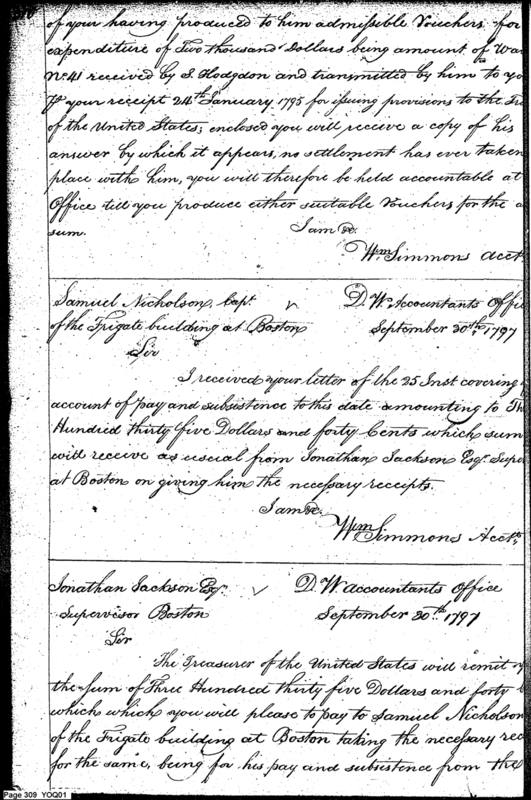 of your having produced to him admissible Vouchers for
expenditure of Two thousand Dollars being amount of War
No. 41 received by S. Hodgdon and transmitted by him to you
your receipt 24th January 1795 for issuing provisions to the Tr
of the United States; enclosed you will receive a copy of his
answer by which it appears, no settlement has ever taken
place with him, you will therefore be held accountable at
Office till you produce either suitable Vouchers for the a
sum.
I am &c.
Wm Simmons Acct.
Samuel Nicholson, Capt
D. W. Accountants Offic
of the Frigate building at Boston
September 30th, 1797
Sir
I received your letter of the 25 Inst covering
account of pay and subsistence to this date amounting to Th
Hundred thirty five Dollars and forty Cents which sum
will receive as usual from Jonathan Jackson Esqr. Super
at Boston on giving him the necessary receipts.
I am &c.
Wm Simmons Acctt.
Jonathan Jackson Esqr.
D. W. accountants Office
Supervisor Boston
September 30th. 1797
Sir
The Treasurer of the United States will remit
the sum of Three Hundred thirty five Dollars and forty
which which you will please to pay to Samuel Nicholson
of the Frigate building at Boston taking the necessary rec
for the same, being for his pay and subsistence from the
Page 309 YOQ01